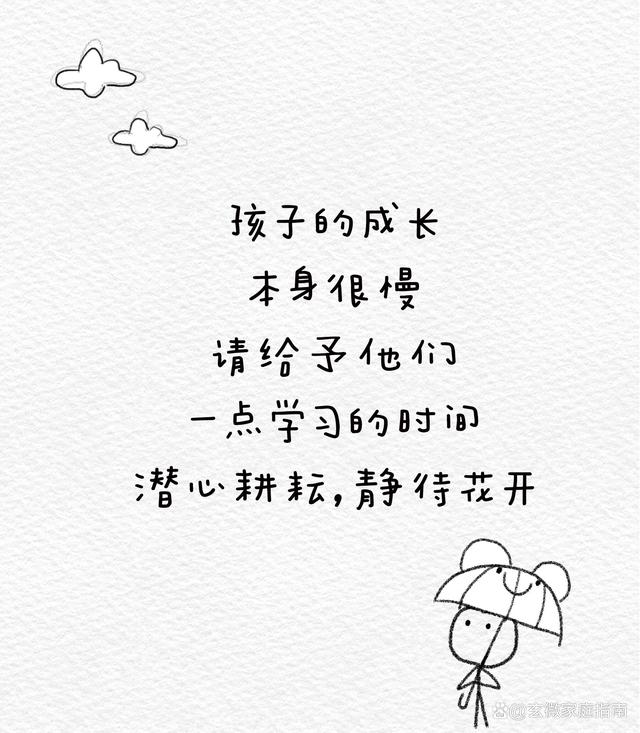 孩子的成长
本身很慢
请给予他们
一点学习的时间
潜心耕耘,静待花开
@玄微家庭指南